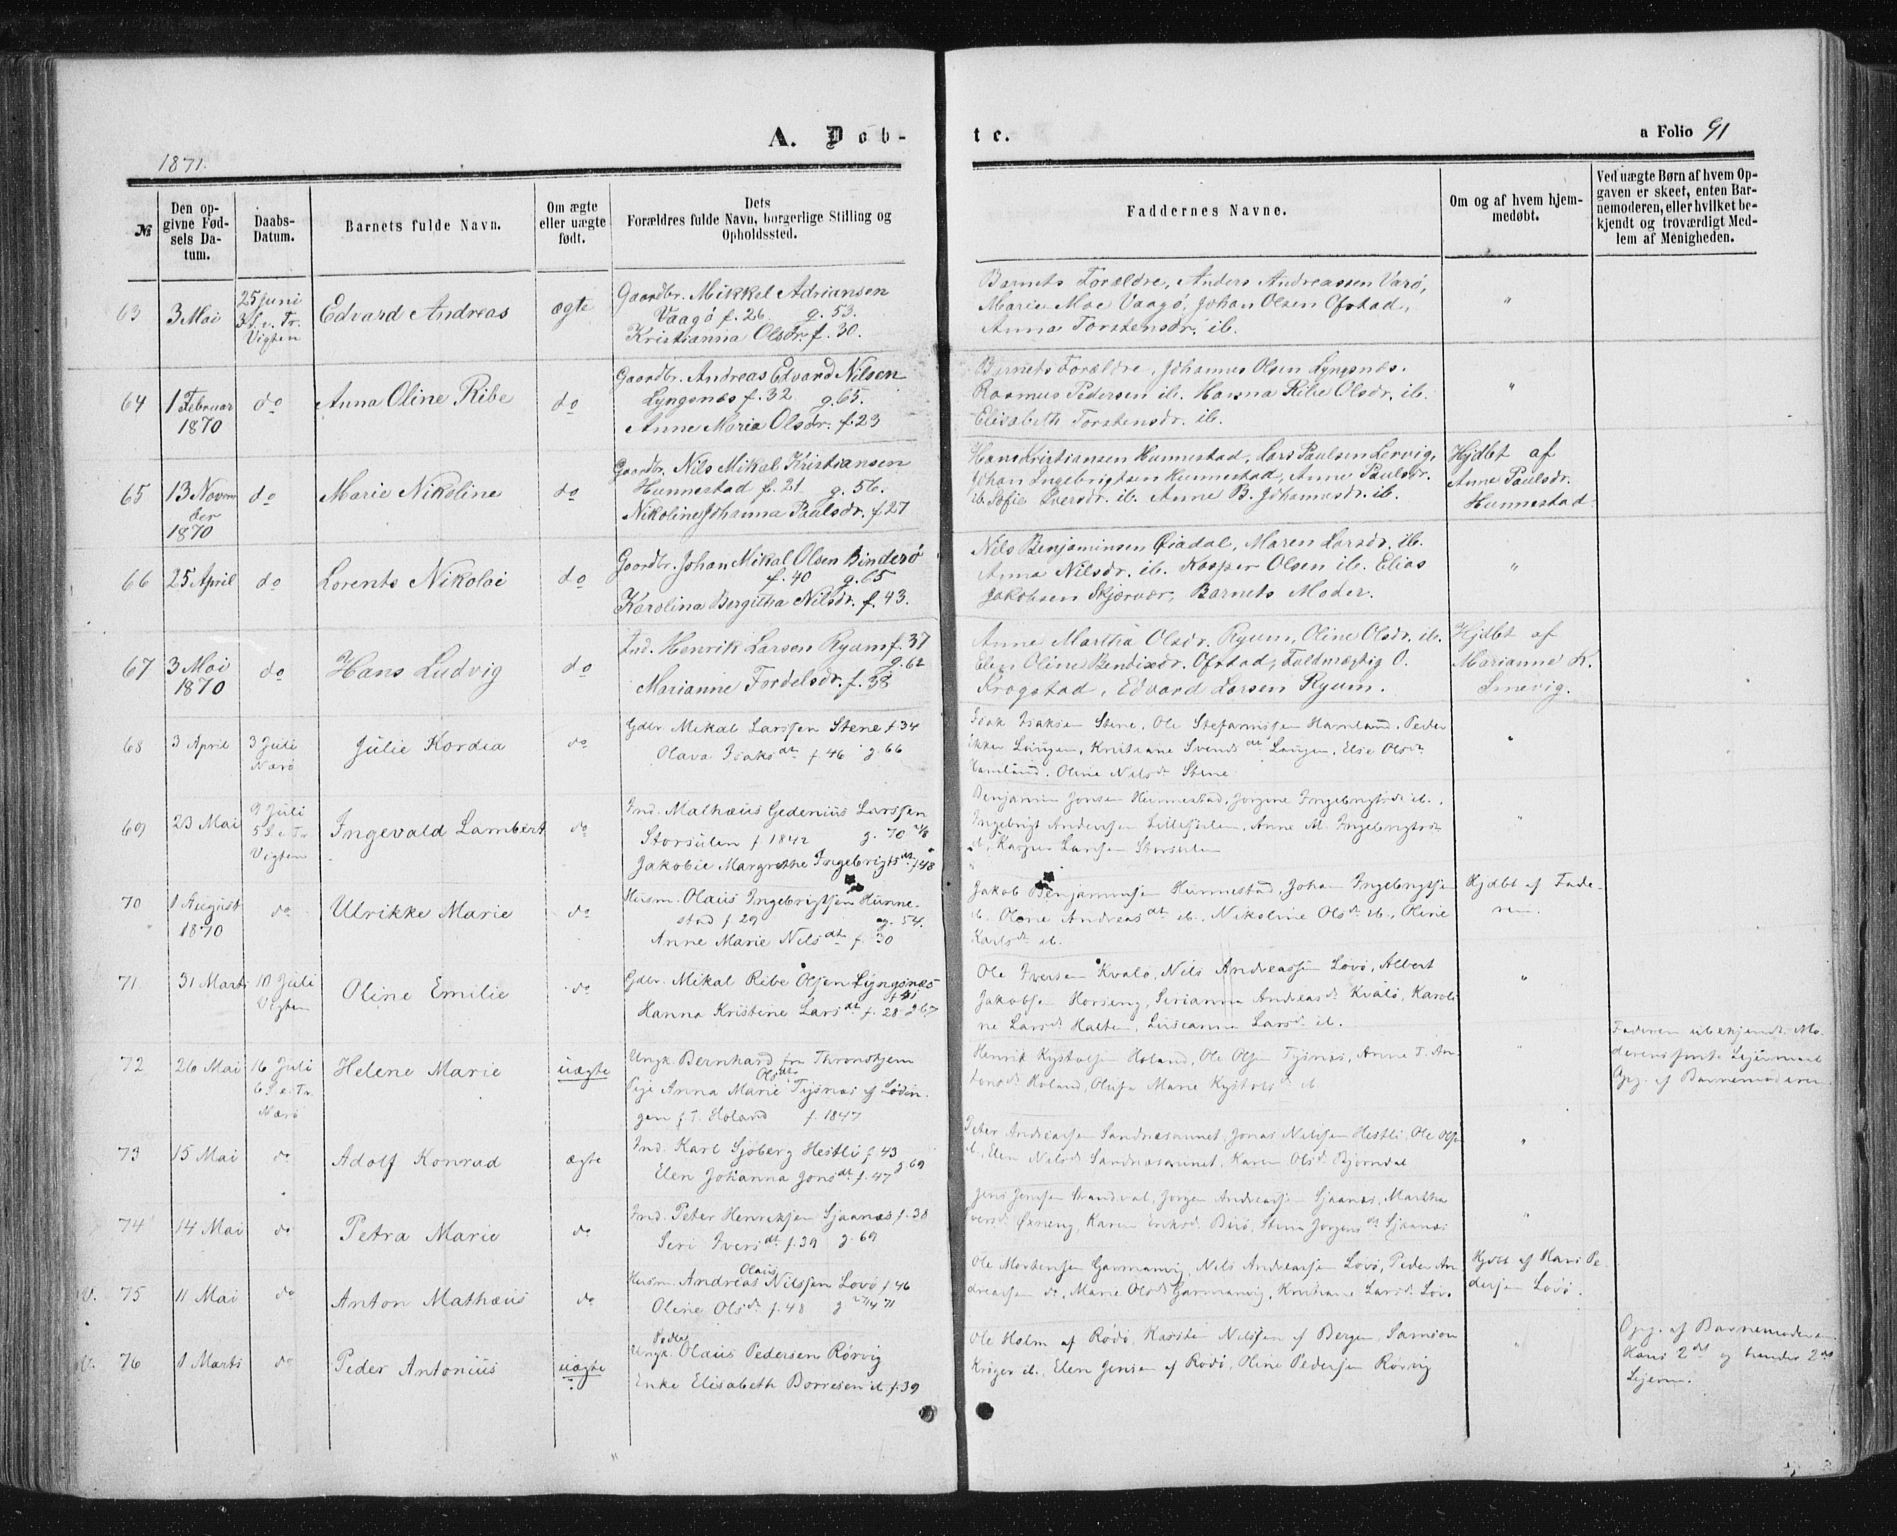 A. Døb-
te.
a Folio 91
1871.
№
Den op-
givne Fød-
sels Da-
tum.
Daabs-
Datum.
Barnets fulde Navn.
Om ægte
eller uægte
født.
Dets
Forældres fulde Navn, borgerlige Stilling og
Opholdssted.
Faddernes Navne.
Om og af hvem hjem-
medøbt.
Ved uægte Børn af hvem Op-
gaven er skeet, enten Bar-
nemoderen, eller hvilket be-
kjendt og troværdigt Med-
lem af Menigheden.
63
3 Mai
25 juni
3 S. e. Tr.
Vigten
Edvard Andreas
ægte
Gaardbr. Mikkel Adriansen
Vaagø f. 26 g. 53.
Kristianna Olsdr. f. 30.
Barnets Forældre, Anders Andreassen Varø,
Marie Moe Vaagø, Johan Olsen Ofstad,
Anna Torstensdr. ib.
"
64
1 Februar
1870
do
Anna Oline Ribe
do
Gaardbr. Andreas Edvard Nilsen
Lyngsnæs f. 32 g. 65.
Anne Maria Olsdr. f. 23
Barnets Forældre, Johannes Olsen Lyngsnæs.
Rasmus Pedersen ib. Hanna Ribe Olsdr. ib.
Elisabeth Torstensdr. ib.
"
65
13 Novem
ber
1870
do
Marie Nikoline
do
Gaardbr. Nils Mikal Kristiansen
Hunnestad f. 21 g. 56.
Nikoline Johanna Paulsdr. f. 27
Hans Kristiansen Hunnestad, Lars Paulsen Lervig,
Johan Ingebrigtsen Hunnestad, Anne Paulsdr.
ib. Sofie Iversdr. ib. Anne B. Johannesdr. ib.
Hjdbt af
Anne Paulsdr.
Hunnestad
66
25 April
do
Lorents Nikolai
do
Gaardbr. Johan Mikal Olsen Binderø
f. 40 g. 65
Karolina Bergitha Nilsdr. f. 43.
Nils Benjaminsen Øiadal, Maren Larsdr. ib.
Anna Nilsdr. ib. Kasper Olsen ib. Elias
Jakobsen Skjærvær, Barnets Moder.
"
67
3 Mai
1870
do
Hans Ludvig
do
Ind. Henrik Larsen Ryum f. 37
g. 62
Marianne Fordelsdr. f. 38
Anne Martha Olsdr. Ryum, Oline Olsdr. ib.
Elen Oline Bendixdr. Ofstad, Fuldmægtig O.
Krogstad, Edvard Larsen Ryum.
Hjdbt af
Marianne K.
Smevig.
68
3 April
3 Juli
Nærø
Julie Kordia
do
Gdbr. Mikal Larssen Stene f 34
Olava Isaksdt f 46 g. 66
Isak Isaksen Stene, Ole Stefanussen Hamland, Peder
Laugen, Kristiane Svendsdt Laugen, Else Olsdt
Hamland, Oline Nilsdt Stene
"
69
23 Mai
9 Juli
5 S. e. Tr.
Vigten
Ingevald Lambert
do
Ind. Mathæus Gedenius Larssen
Storsulen f 1842 g. 70
Jakobie Margrethe Ingebrigtsdt f 48
Benjamin Jonsen Hunnestad, Jorgine Ingebrigtsdt ib.,
Ingebrigt Anderssen Lillesulen, Anne M. Ingebrigts
dt, Kasper Larssen Storsulen
"
70
1 August
1870
do
Ulrikke Marie
do
Husm. Olaus Ingebrigtsen Hunne-
stad f 29 g. 54.
Anne Marie Nilsdt f. 30
Jakob Benjaminsen Hunnestad, Johan Ingebrigtsen
ib. Oline Andreasdt ib. Nikoline Olsdt ib., Oline
Karlsdt ib.
Hjdbt af Fade-
ren.
71
31 Marts
10 Juli
Vigten
Oline Emilie
do
Gdbr. Mikal Ribe Olsen Lyngsnæs
f 41
Hanna Kristine Larsdt f. 28 g 67
Ole Iversen Kvalø, Nils Andreassen Lovø, Albert
Jakobsen Horseng, Serianna Andreasdt Kvalø, Karoli
ne Larsdt Halten, Lusianna Larsdt ib.
"
72
26 Mai
16 Juli
6 S. e. Tr.
Nærø
Helene Marie
uægte
Ungk. Bernhard fra Throndhjem
Olsdt
Pige Anna Marie Tysnæs af Lødin-
gen f. T. Holand f. 1847
Henrik Hystolsen Holand, Ole Olsen Tysnæs, Anne T. An-
tonsdt Holand, Olufa Marie Kystolsdt ib
"
Faderen ubekjendt. Mo-
derens første Lejermaal
Opg. af Barnemoderen.
73
15 Mai
do
Adolf Konrad
ægte
Ind. Karl Sjøberg Hestli f. 43
g 69
Elen Johanna Jonsdt f. 47
Peter Andreassen Sandnæsaunet, Jonas Nilssen Hestli, Ole Olsen
ib., Elen Nilsdt Sandnæsaunet, Karen Olsdt Bjørndal
"
74
14 Mai
do
Petra Marie
do
Ind. Peter Henriksen Sjaanæs f. 38
Seri Iversdt f. 39 g. 69
Jens Jenssen Strandval, Jørgen Andreassen Sjaanæs, Martha
Iversdt Øxneng, Karen Eriksdt Buø, Stena Jørgensdt Sjaanæs
"
75
11 Mai
do
Anton Mathæus
do
Olaus
Husm. Andreas Nilssen Lovø f. 46
Oline Olsdt f. 48 g 27/4 71
Ole Mortensen Garmanvig, Nils Andreassen Lovø, Peder An
dreassen ib., Marie Olsdt Garmanvig, Kristiane Larsdt Lovø
Hjdbt af Hans Pe-
dersen Lovø.
76
1 Marts
do
Peder Antonius
uægte
Ungk. Olaus Pedersen Rørvig
Enke Elisabeth Borresen ib f. 39
Ole Holm af Rødø, Karsten Nilssen af Bergen, Samson
Krøger ib., Elen Jensen af Rødø, Oline Pedersen Rørvig
"
Opg. af Barnemoderen.
Hans 2det og hendes 2det
Lejerm.